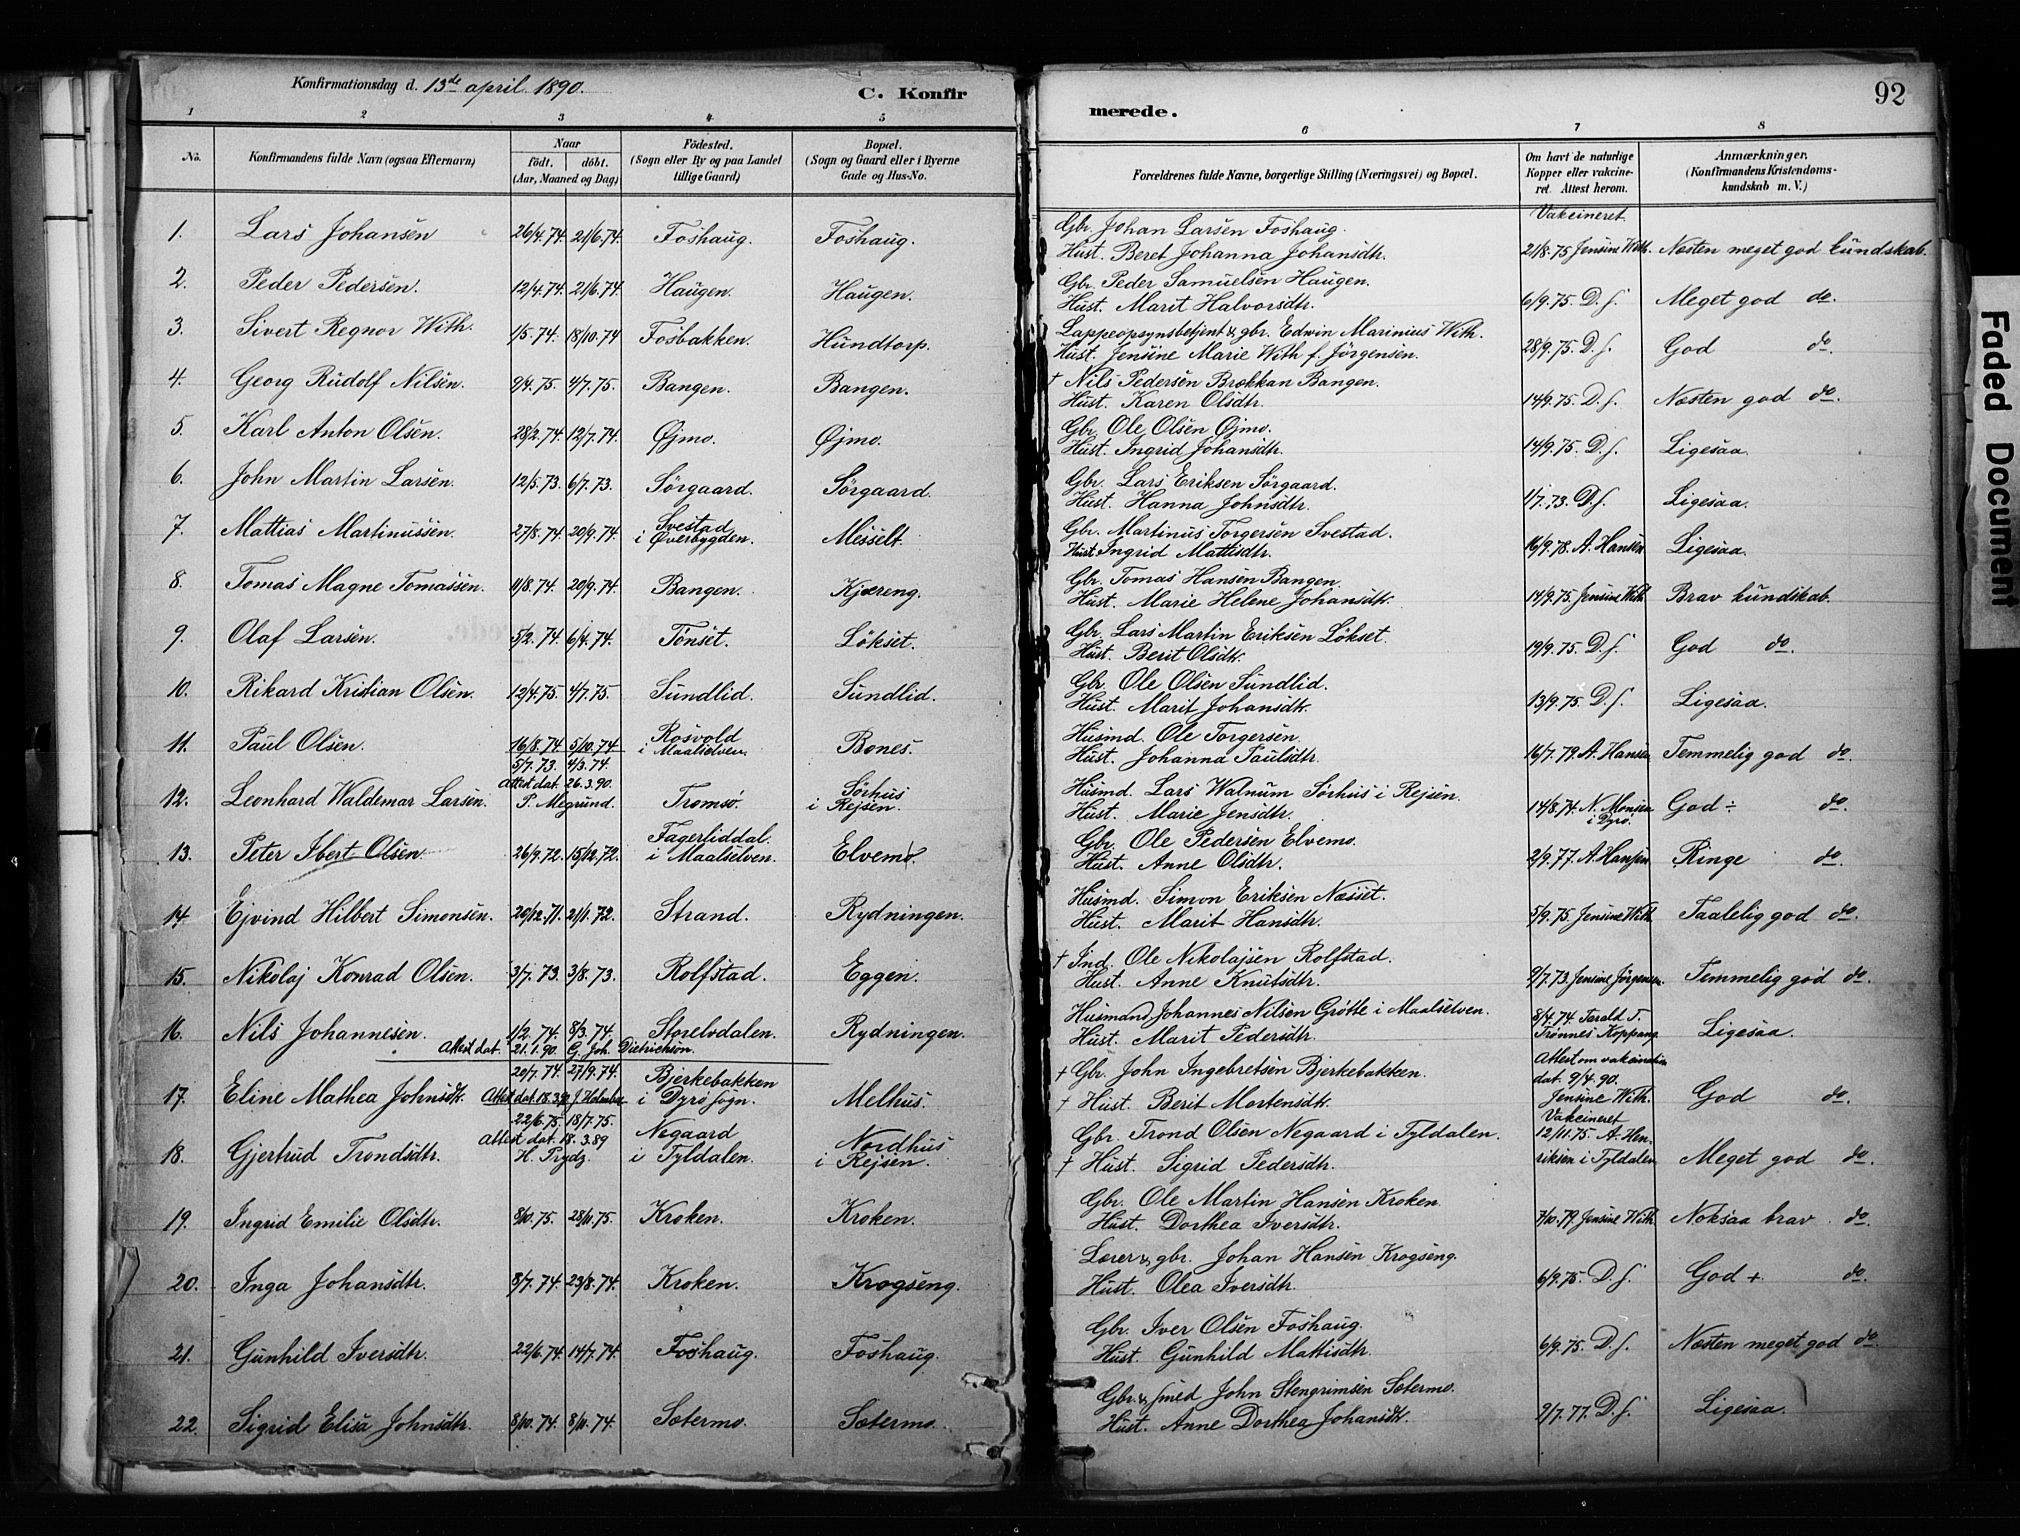 Konfirmationsdag d. 13de april 1890.
C. Konfirmerede.
92
1 2 3 4 5 6 7 8
No. Konfirmandens fulde Navn (ogsaa Efternavn) Naar födt. döbt. (Aar, Maaned og Dag) Födested. (Sogn eller By og paa Landet tillige Gaard) Bopæl. (Sogn og Gaard eller i Byerne Gade og Hus-No. Forældrenes fulde Navne, borgerlige Stilling (Næringsvei) og Bopæl. Om havt de naturlige Kopper eller vakcineret. Attest herom. Anmærkninger. (Konfirmandens Kristendomskundskab m. V.)
Vakcineret
1. Lars Johansen 26/4.74. 21/6.74. Foshaug. Foshaug. Gbr. Johan Larsen Foshaug. Hust. Beret Johanna Johansdtr. 21/8.75 Jensine With. Næsten meget god kundskab.
2. Peder Pedersen. 12/4.74. 21/6.74. Haugen. Haugen. Gbr. Peder Samuelsen Haugen. Hust. Marit Halvorsdtr. 6/9.75. D. s. Meget god do.
3. Sivert Regnor With. 1/5.74. 18/10.74 Fosbakken. Hundtorp. Lappeopsynsbetjent & gbr. Edwin Marinius With. Hust. Jensine Marie With f. Jörgensen. 28/9.75. D. s. God do.
4. Georg Rudolf Nilsen. 9/4.75. 4/7.75. Bangen. Bangen. † Nils Pedersen Brækkan Bangen. Hust. Karen Olsdtr. 14/9.75. D. s. Næsten god do.
5. Karl Anton Olsen. 28/2.74. 12/7.74. Øjmo. Øjmo. Gbr. Ole Olsen Øjmo. Hust. Ingrid Johansdtr. 14/9.75. D. s. Ligesaa.
6. John Martin Larsen. 12/5.73. 6/7.73. Sörgaard. Sörgaard. Gbr. Lars Eriksen Sörgaard. Hust. Hanna Johnsdtr. 1/7.73. D. s. Ligesaa.
7. Mattias Martinussen. 27/8.74. 20/9.74. Svestad i Øverbygden. Messelt. Gbr. Martinus Torgersen Svestad. Hust. Ingrid Mattisdtr. 16/9.78. A. Hansen Ligesaa.
8. Tomas Magne Tomassen. 11/8.74. 20/9.74. Bangen. Kjæreng. Gbr. Tomas Hansen Bangen. Hust. Marie Helene Johansdtr. 14/9.75. Jensine With. Brav kundskab.
9. Olaf Larsen. 5/2.74. 6/4.74. Tönset. Lökset. Gbr. Lars Martin Eriksen Lökset. Hust. Berit Olsdtr. 19/9.75. D. s. God do.
10. Rikard Kristian Olsen. 12/4.75. 4/7.75. Sundlid. Sundlid. Gbr. Ole Olsen Sundlid. Hust. Marit Johansdtr. 13/9.75. D. s. Ligesaa.
11. Paul Olsen. 16/8.74. 5/10.74 Rosvold i Maalselven. Bones. Husmd. Ole Torgersen. Hust. Johanna Paulsdtr. 16/7.79. A. Hansen Temmelig god do.
12. Leonhard Waldemar Larsen. 5/7.73. 4/3.74. Attest dat. 26.3.90. Tromsø. Sörhus i Rejsen. Husmd. Lars Walnum Sörhus i Rejsen. Hust. Marie Jensdtr. 14/8.74. N. Monsen i Dyrö. God ÷ do.
13. Peter Ibert Olsen. 26/9.72. 15/12.72. Fagerliddal. i Maalselven. Elvemo. Gbr. Ole Pedersen Elvemo. Hust. Anne Olsdtr. 2/9.77. A. Hansen Ringe do.
14. Ejvind Hilbert Simonsen. 20/12.71. 21/1.72. Strand. Rydningen. Husmd. Simon Eriksen Næsset. Hust. Marit Hansdtr. 5/9.75. Jensine With. Taalelig god do.
15. Nikolaj Konrad Olsen. 3/7.73. 3/8.73. Rolfstad. Eggen. † Ind. Ole Nikolajsen Rolfstad. Hust. Anne Knutsdtr. 9/7.73. Jensine Jörgensen. Temmelig god do.
16. Nils Johannesen. 1/2.74. 8/3.74. Attest dat. 21.1.90. G. Joh. Dietrichson. Storelvdalen. Rydningen. Husmand Johannes Nilsen Grötte i Maalselven. Hust. Marit Pedersdtr. 8/4.74. Tarald T. Trønnes Koppang. Ligesaa.
17. Eline Mathea Johnsdtr. 20/7.74. 27/9.74. Bjerkebakken i Dyrø sogn. Melhus. † Gbr. John Ingebretsen Bjerkebakken. † Hust. Berit Mortensdtr. Attest om vakcination dat. 9/4.90. Jensine With. God do.
18. Gjertrud Trondsdtr. 22/6.75. 18/7.75. Attest dat. 18.3.89 H. Prydz. Negaard i Tyldalen. Nordhus i Rejsen. Gbr. Trond Olsen Negaard i Tyldalen. † Hust. Sigrid Pedersdtr. Vakcineret 12/11.75. A. Henriksen i Tyldalen Meget god do.
19. Ingrid Emilie Olsdtr. 8/10.75. 28/11.75. Kroken. Kroken. Gbr. Ole Martin Hansen Kroken Hust. Dorthea Iversdtr. 7/10.79. Jensine With. Noksaa brav. do.
20. Inga Johansdtr. 8/7.74. 23/8.74. Kroken. Krogseng. Lærer & gbr. Johan Hansen Krogseng. Hust. Olea Iversdtr. 6/9.75. D. s. God +. do.
21. Gunhild Iversdtr. 22/6.74. 14/7.74. Foshaug. Foshaug. Gbr. Iver Olsen Foshaug. Hust. Gunhild Mattisdtr. 6/9.75. D. s. Næsten meget god do
22. Sigrid Elisa Johnsdtr. 8/10.74. 8/11.74. Sætermo. Sætermo. Gbr. & smed John Stengrimsen Sætermo. Hust. Anne Dorthea Johansdtr. 9/7.77. D. s. Ligesaa.
Faded Document